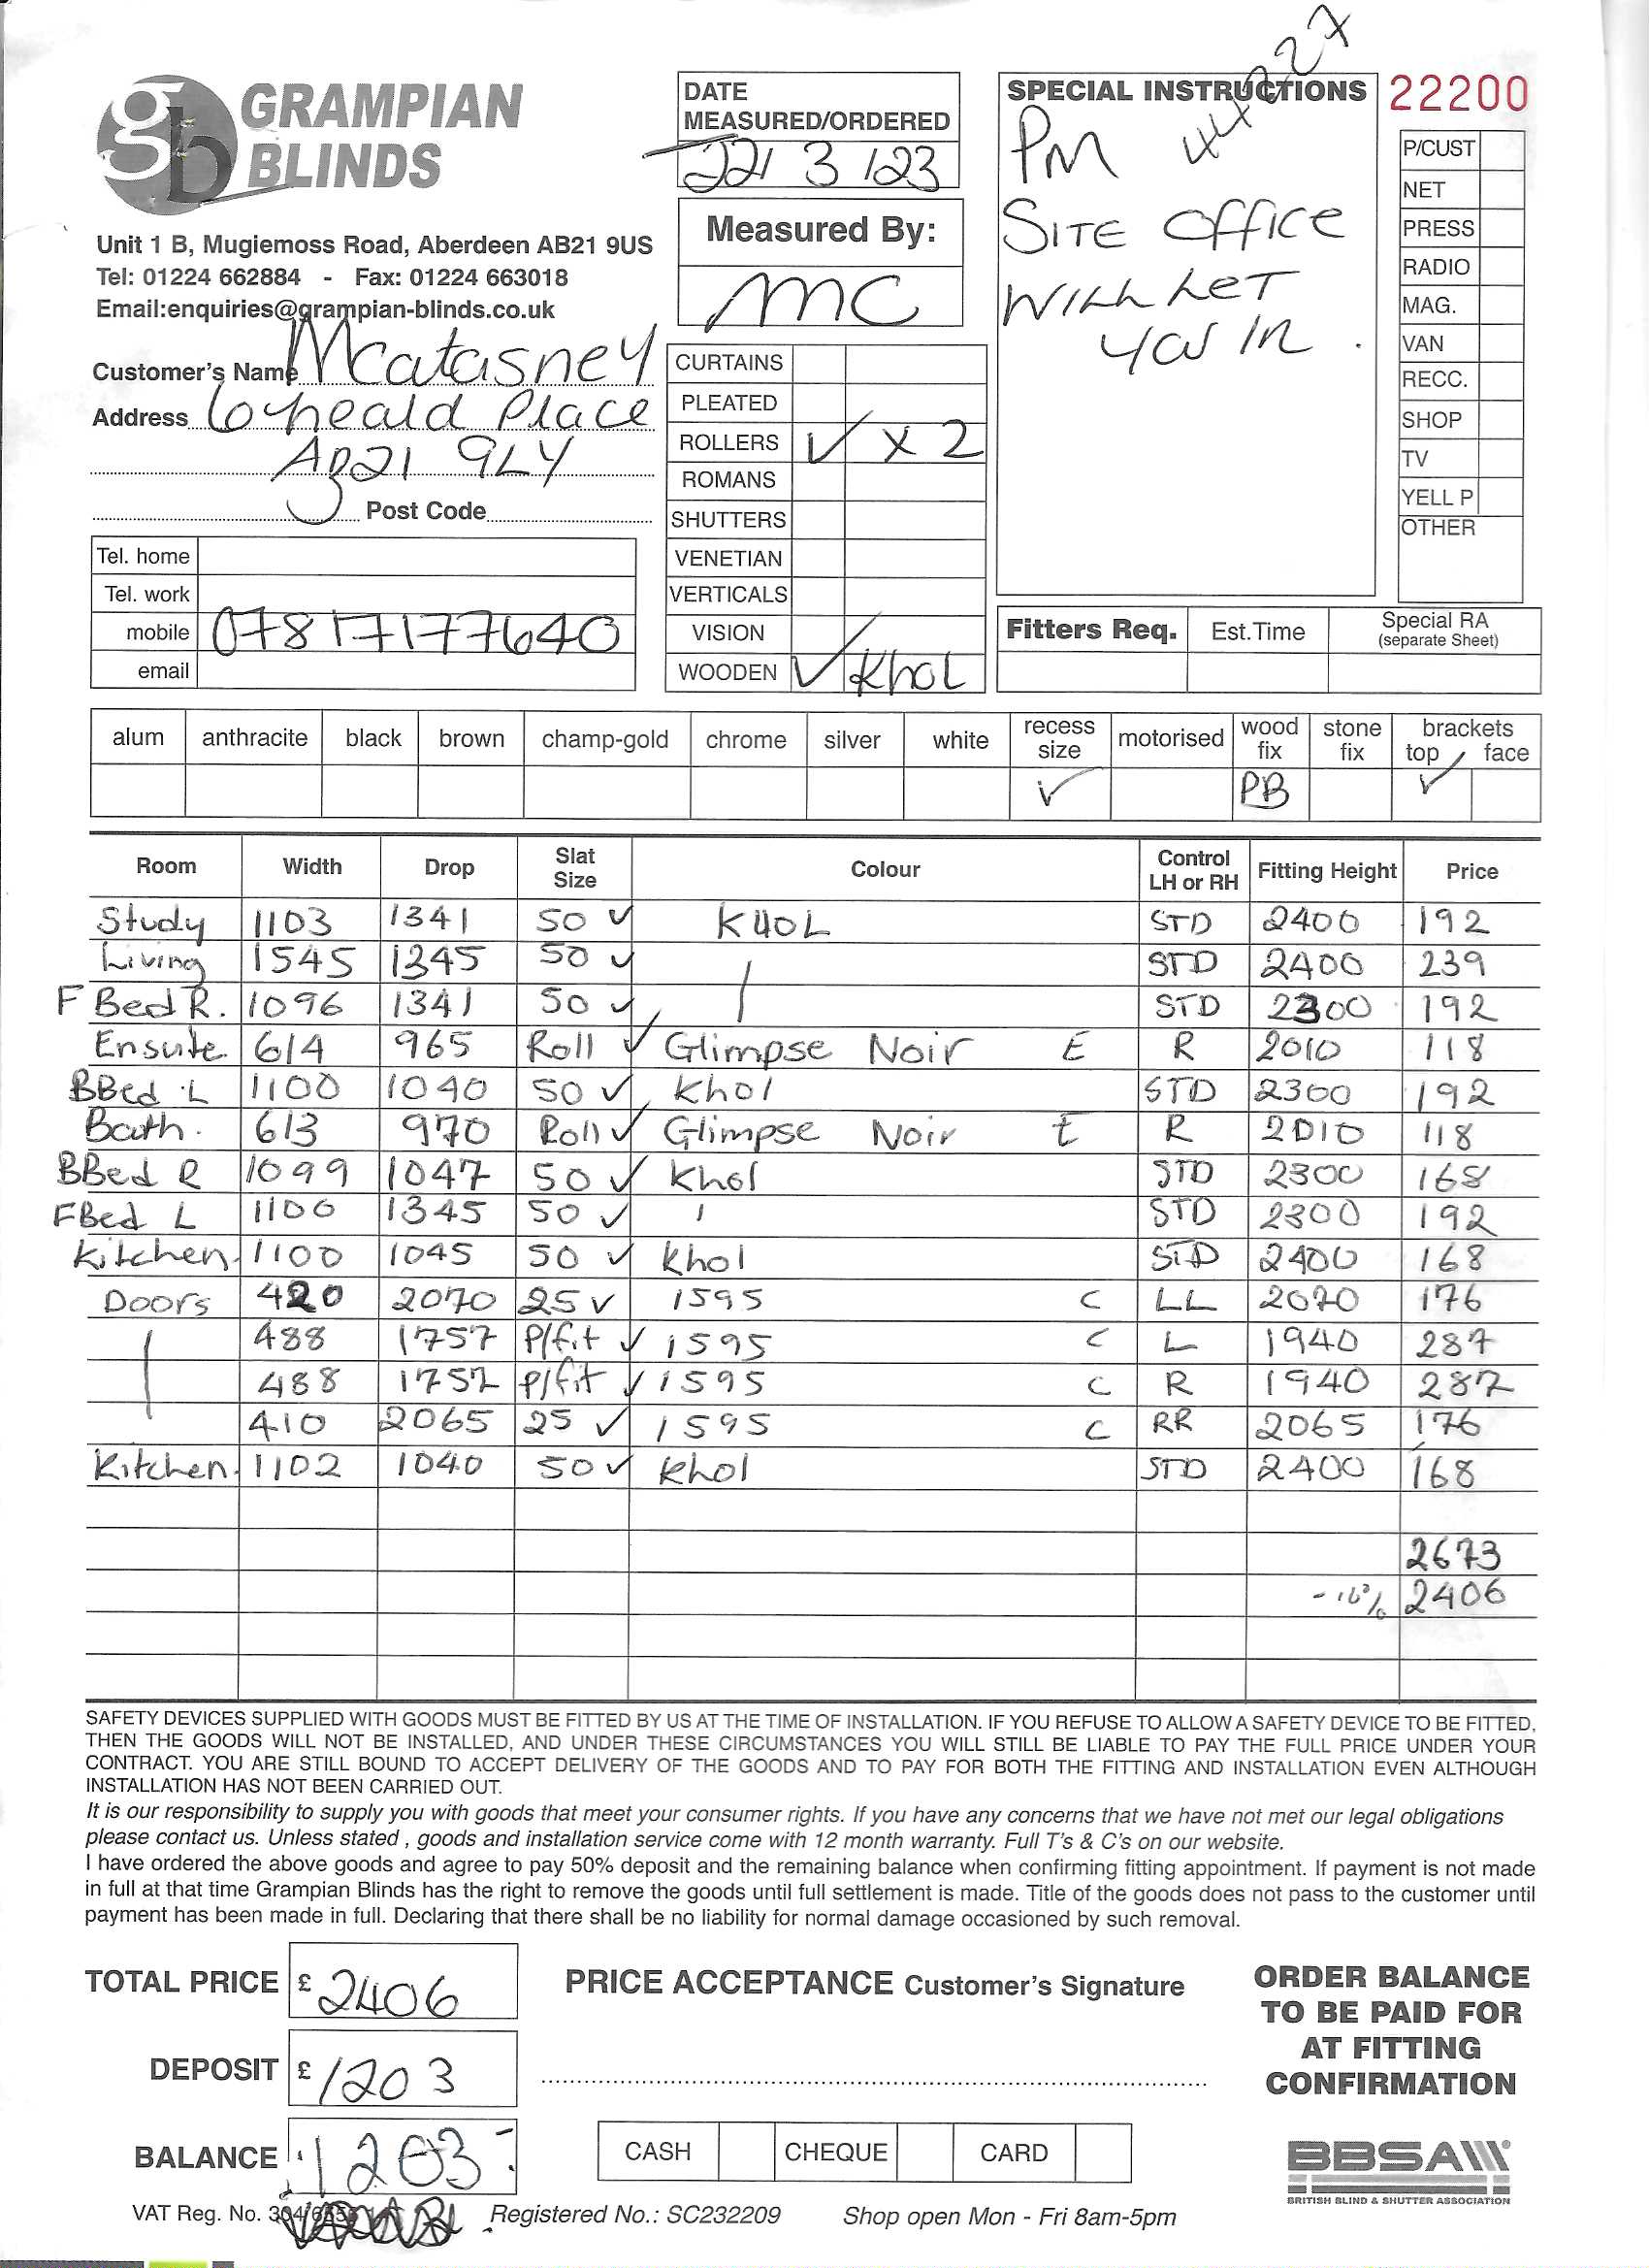 44227
GRAMPIAN
BLINDS
gb
Unit 1 B, Mugiemoss Road, Aberdeen AB21 9US
Tel: 01224 662884 - Fax: 01224 663018
Email:enquiries@grampian-blinds.co.uk
Customer's Name Mcatasney
Address 6 yheald Place
AB21 9LY
Post Code
Tel. home
Tel. work
mobile 07817177640
email
DATE
MEASURED/ORDERED
22/3/23
Measured By:
MC
CURTAINS
PLEATED
ROLLERS ✓ x 2
ROMANS
SHUTTERS
VENETIAN
VERTICALS
VISION
WOODEN ✓ Khol
SPECIAL INSTRUCTIONS
PM
SITE OFFICE
WILL LET
YOU IN.
22200
P/CUST
NET
PRESS
RADIO
MAG.
VAN
RECC.
SHOP
TV
YELL P
OTHER
Fitters Req. Est.Time Special RA
(separate Sheet)
alum anthracite black brown champ-gold chrome silver white recess size motorised wood fix stone fix brackets top face
✓ PB ✓
Room Width Drop Slat Size Colour Control LH or RH Fitting Height Price
Study 1103 1341 50 ✓ KHOL STD 2400 192
Living 1545 1345 50 ✓ STD 2400 239
F Bed R. 1096 1341 50 ✓ STD 2300 192
Ensuite. 614 965 Roll ✓ Glimpse Noir E R 2010 118
BBed L 1100 1040 50 ✓ Khol STD 2300 192
Bath. 613 970 Roll ✓ Glimpse Noir E R 2010 118
BBed R 1099 1047 50 ✓ Khol STD 2300 168
FBed L 1100 1345 50 ✓ STD 2300 192
Kitchen. 1100 1045 50 ✓ Khol STD 2400 168
Doors 420 2070 25 ✓ 1595 C LL 2070 176
488 1757 P/fit ✓ 1595 C L 1940 287
488 1757 P/fit ✓ 1595 C R 1940 287
410 2065 25 ✓ 1595 C RR 2065 176
Kitchen. 1102 1040 50 ✓ Khol STD 2400 168
2673
-10% 2406
SAFETY DEVICES SUPPLIED WITH GOODS MUST BE FITTED BY US AT THE TIME OF INSTALLATION. IF YOU REFUSE TO ALLOW A SAFETY DEVICE TO BE FITTED,
THEN THE GOODS WILL NOT BE INSTALLED, AND UNDER THESE CIRCUMSTANCES YOU WILL STILL BE LIABLE TO PAY THE FULL PRICE UNDER YOUR
CONTRACT. YOU ARE STILL BOUND TO ACCEPT DELIVERY OF THE GOODS AND TO PAY FOR BOTH THE FITTING AND INSTALLATION EVEN ALTHOUGH
INSTALLATION HAS NOT BEEN CARRIED OUT.
It is our responsibility to supply you with goods that meet your consumer rights. If you have any concerns that we have not met our legal obligations
please contact us. Unless stated , goods and installation service come with 12 month warranty. Full T's & C's on our website.
I have ordered the above goods and agree to pay 50% deposit and the remaining balance when confirming fitting appointment. If payment is not made
in full at that time Grampian Blinds has the right to remove the goods until full settlement is made. Title of the goods does not pass to the customer until
payment has been made in full. Declaring that there shall be no liability for normal damage occasioned by such removal.
TOTAL PRICE £ 2406
DEPOSIT £ 1203
BALANCE 1203
PRICE ACCEPTANCE Customer's Signature
CASH CHEQUE CARD
ORDER BALANCE
TO BE PAID FOR
AT FITTING
CONFIRMATION
BBSA
BRITISH BLIND & SHUTTER ASSOCIATION
VAT Reg. No. Registered No.: SC232209 Shop open Mon - Fri 8am-5pm